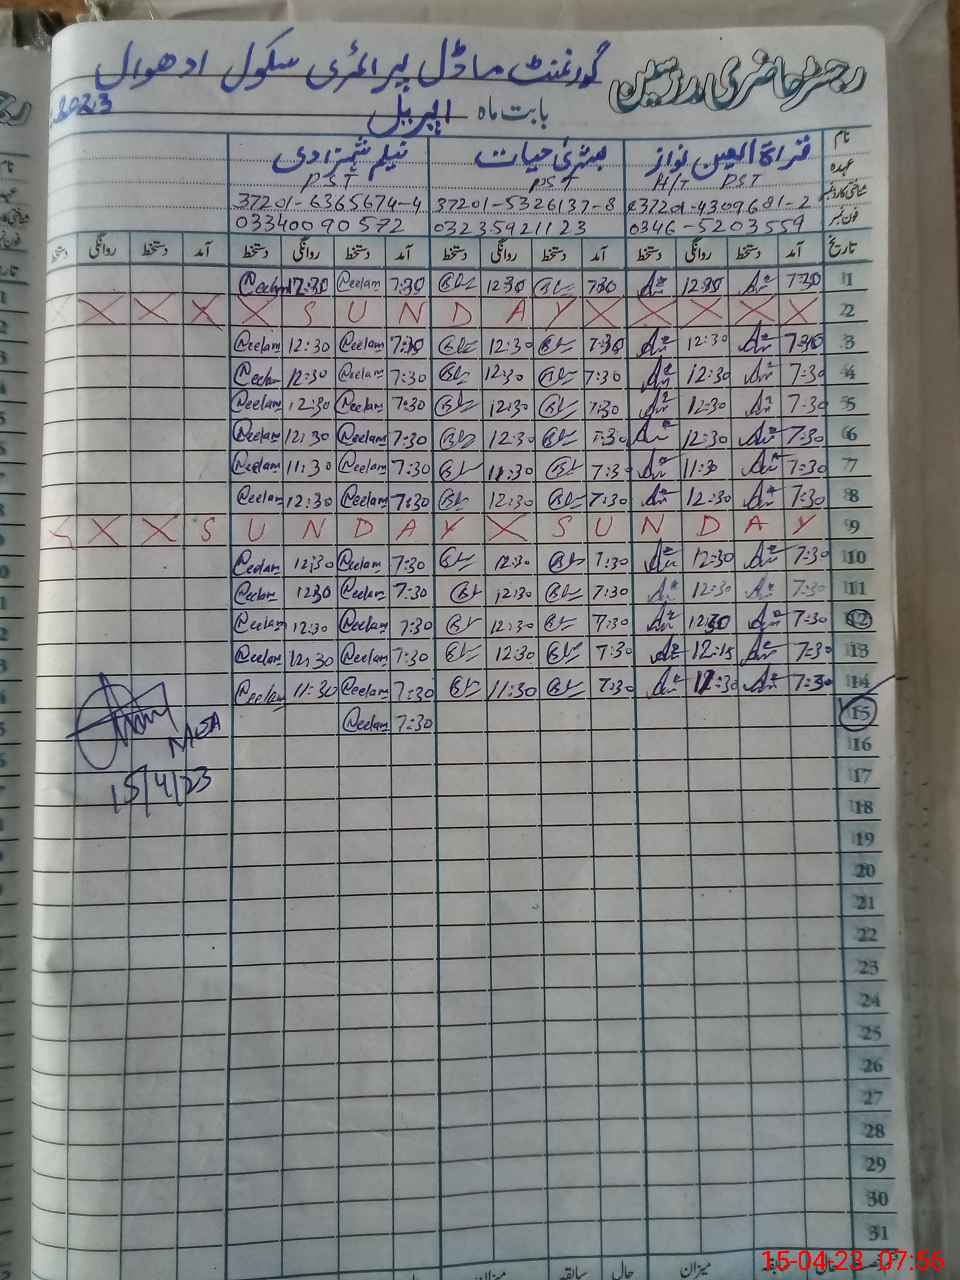 رجسٹر حاضری مدرسین گورنمنٹ ماڈل پرائمری سکول ادھوال
بابت ماہ اپریل 2023
نام قراۃ العین نواز بشریٰ حیات نیلم شہزادی
عہدہ H/T PST PST PST
شناختی کارڈ نمبر 37201-4309681-2 37201-5326137-8 37201-6365674-4
فون نمبر 0346-5203559 03235921123 03340090572
تاریخ آمد دستخط روانگی دستخط آمد دستخط روانگی دستخط آمد دستخط روانگی دستخط آمد دستخط روانگی دستخط
1 7:30 12:30 7:30 12:30 7:30 Neelam 12:30 Neelam
2 X X X X X Y A D N U S X X X X
3 7:30 12:30 7:30 12:30 7:30 Neelam 12:30 Neelam
4 7:30 12:30 7:30 12:30 7:30 Neelam 12:30 Neelam
5 7:30 12:30 7:30 12:30 7:30 Neelam 12:30 Neelam
6 7:30 12:30 7:30 12:30 7:30 Neelam 12:30 Neelam
7 7:30 11:30 7:30 11:30 7:30 Neelam 11:30 Neelam
8 7:30 12:30 7:30 12:30 7:30 Neelam 12:30 Neelam
9 Y A D N U S X Y A D N U S X X
10 7:30 12:30 7:30 12:30 7:30 Neelam 12:30 Neelam
11 7:30 12:30 7:30 12:30 7:30 Neelam 12:30 Neelam
12 7:30 12:30 7:30 12:30 7:30 Neelam 12:30 Neelam
13 7:30 12:15 7:30 12:30 7:30 Neelam 12:30 Neelam
14 7:30 11:30 7:30 11:30 7:30 Neelam 11:30 Neelam
15 7:30 Neelam
MEA
15/4/23
16
17
18
19
20
21
22
23
24
25
26
27
28
29
30
31
میزان حال سابقہ میزان
15-04-23 07:56